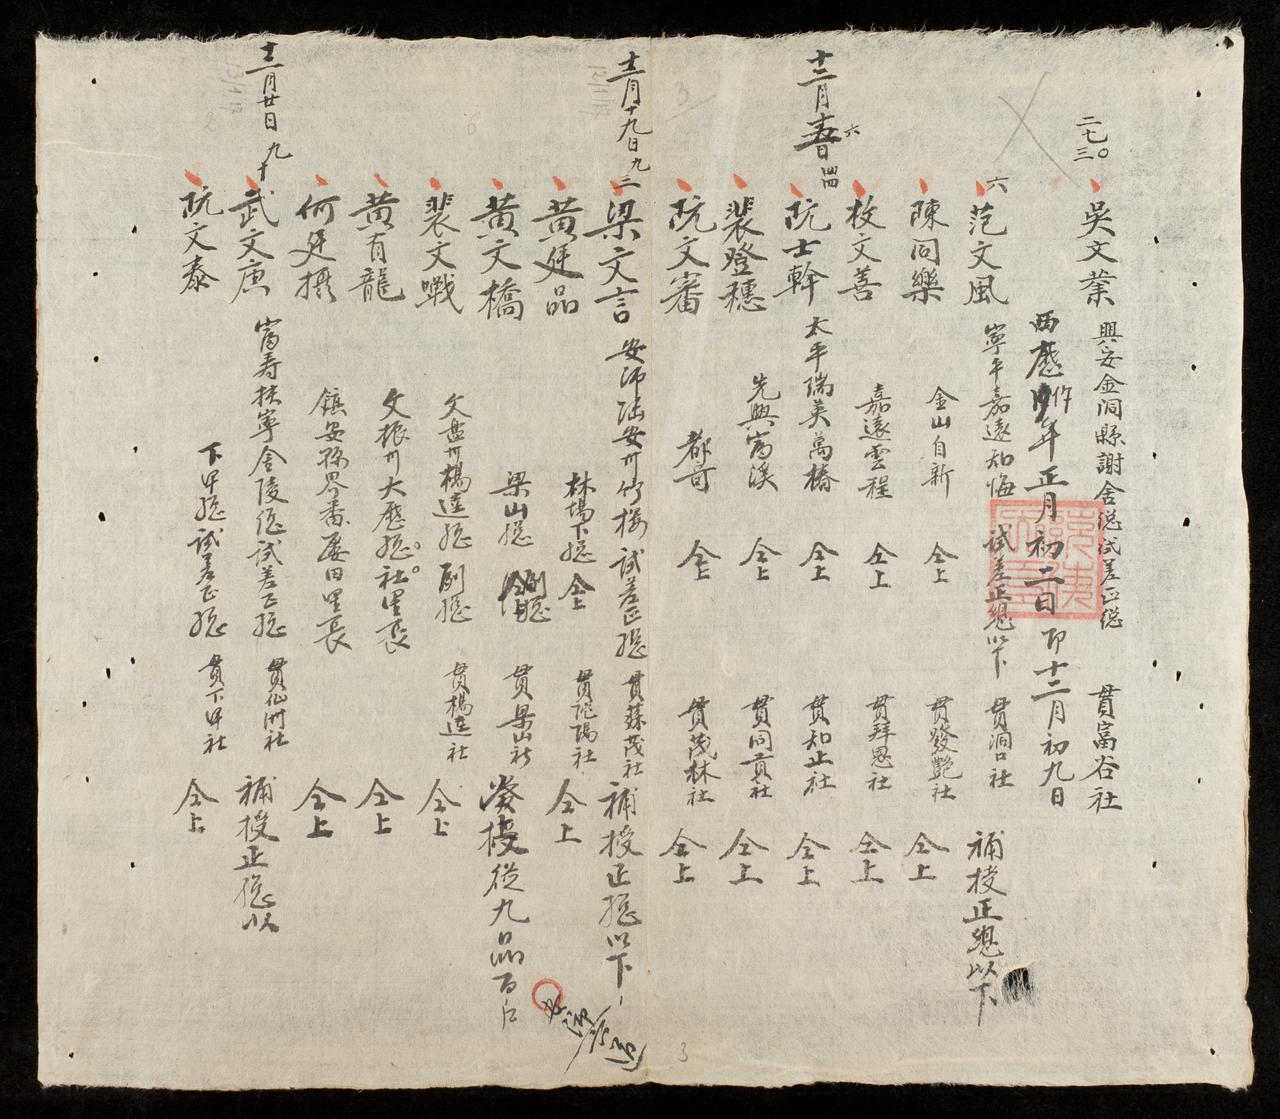 二七三〇
吳文業 興安金洞縣謝舍總試差正總 貫富谷社
西曆 年正月初二日即十二月初九日
六
范文風 寧平嘉遠知悔 試差正總以下 貫洞口社 補授正總以下
陳同樂 金山自新 仝上 貫發艶社 仝上
枚文善 嘉遠雲程 仝上 貫拜恩社 仝上
十二月 日 六
阮士幹 太平瑞英萬椿 仝上 貫知止社 仝上
裴登穗 先興富溪 仝上 貫同貢社 仝上
阮文審 都奇 仝上 貫茂林社 仝上
十二月十九日 九三
梁文言 安沛陆安州竹樓 試差正總 貫蘇茂社 補授正總以下
黄廷品 林場下總 仝上 貫陀陽社 仝上
黄文橋 梁山總 副總 貫梁山社 授從九品百户
裴文戰 文盘州楊逵總 副總 貫楊逵社 仝上
黄有龍 文振州大歷總社里長 仝上
何廷攝 鎮安縣界番屡田里長 仝上
十二月廿日 九十
武文庯 富寿扶寧金陵總試差正總 貫仙洲社 補授正總以
阮文泰 下甲總試差正總 貫下甲社 仝上
3